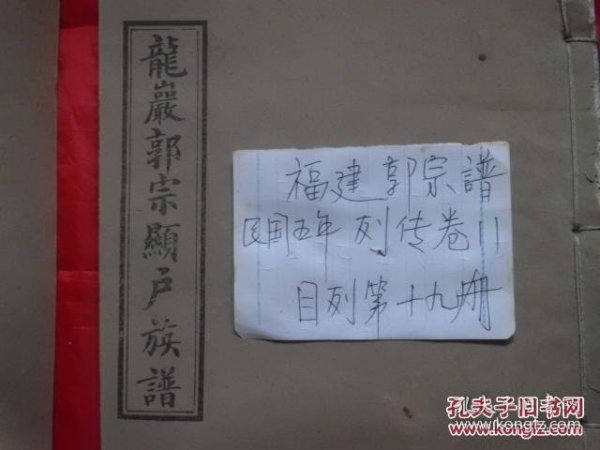 龍巖郭宗顯户族譜
福建郭宗譜
民国五年列传卷11
目列第十九册
孔夫子旧书网
www.kongfz.com